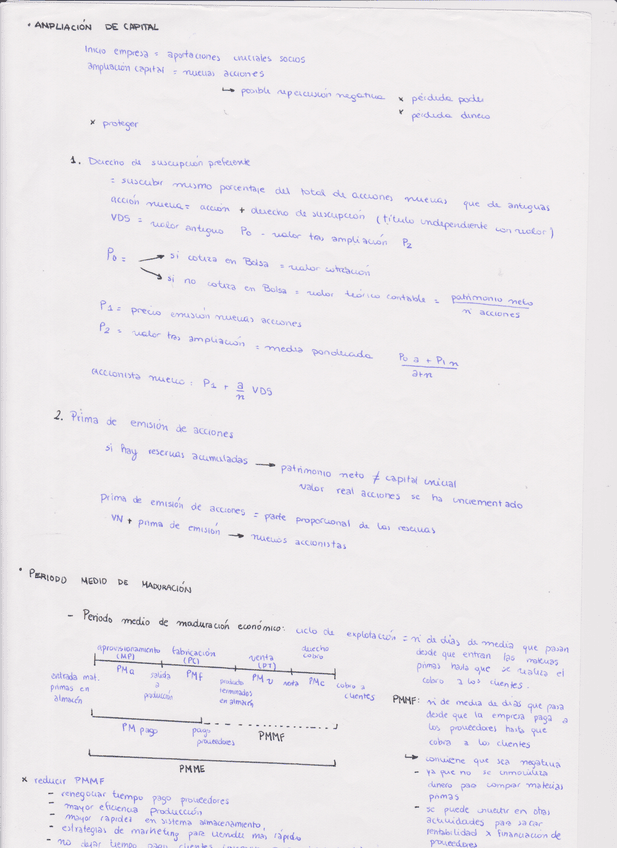 · AMPLIACIÓN DE CAPITAL
Inicio empresa = aportaciones iniciales socios
ampliación capital = nuevas acciones
↳ posible repercusión negativa x pérdida poder
x pérdida dinero
x proteger
1. Derecho de suscripción preferente
= suscribir mismo porcentaje del total de acciones nuevas que de antiguas
acción nueva = acción + derecho de suscripción (título independiente con valor)
VDS = valor antiguo P0 - valor tras ampliación P2
P0 = → si cotiza en Bolsa = valor cotización
→ si no cotiza en Bolsa = valor teórico contable = patrimonio neto / n acciones
P1 = precio emisión nuevas acciones
P2 = valor tras ampliación = media ponderada P0 a + P1 n / a+n
accionista nuevo: P1 + a/n VDS
2. Prima de emisión de acciones
si hay reservas acumuladas → patrimonio neto ≠ capital inicial
valor real acciones se ha incrementado
prima de emisión de acciones = parte proporcional de las reservas
VN + prima de emisión → nuevos accionistas
· PERIODO MEDIO DE MADURACIÓN
- Periodo medio de maduración económico: ciclo de explotación = n de días de media que pasan
desde que entran las materias
primas hasta que se realiza el
cobro a los clientes.
aprovisionamiento (MP) fabricación (PC) venta (PT) derecho cobro
PMa PMf PMv PMc
entrada mat. primas en almacén
salida a producción
producto terminados en almacén
venta
cobro a clientes
PM pago
pago proveedores
PMMF
PMME
PMMF: n de media de días que pasa
desde que la empresa paga a
los proveedores hasta que
cobra a los clientes
↳ conviene que sea negativa
- ya que no se inmoviliza
dinero para comprar materias
primas
- se puede invertir en otras
actividades para sacar
rentabilidad x financiación de
proveedores
x reducir PMMF
- renegociar tiempo pago proveedores
- mayor eficiencia producción
- mayor rapidez en sistema almacenamiento
- estrategias de marketing para vender más rápido
- no dejar tiempo pago clientes